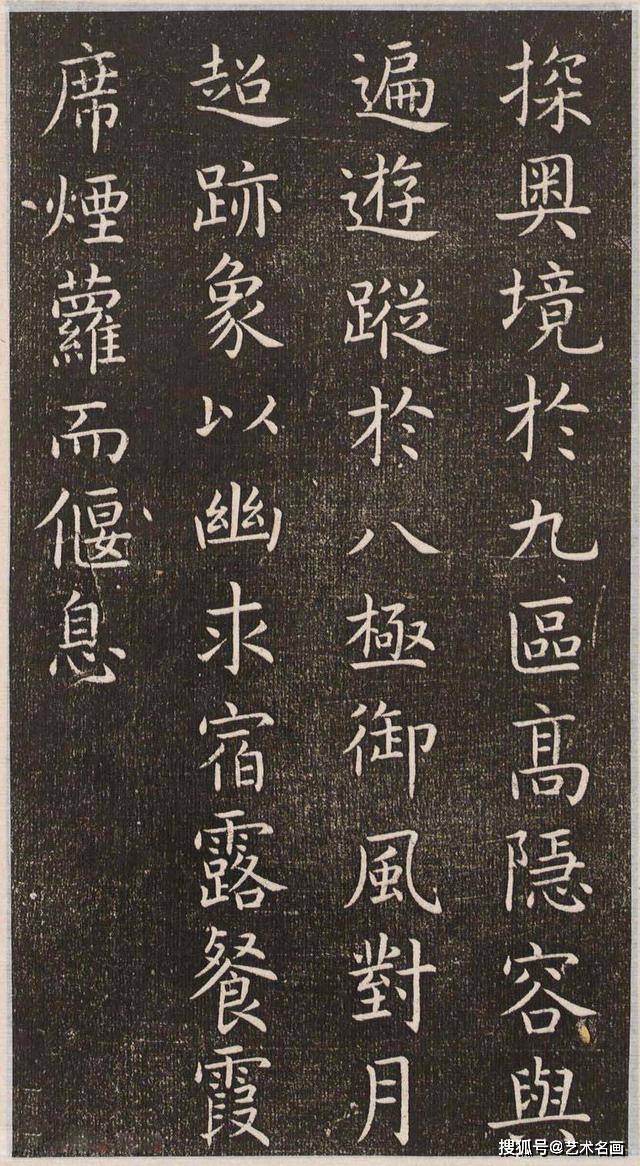 探奧境於九區高隱容與
遍遊蹤於八極御風對月
超跡象以幽求宿露餐霞
席煙蘿而偃息
搜狐号@艺术名画